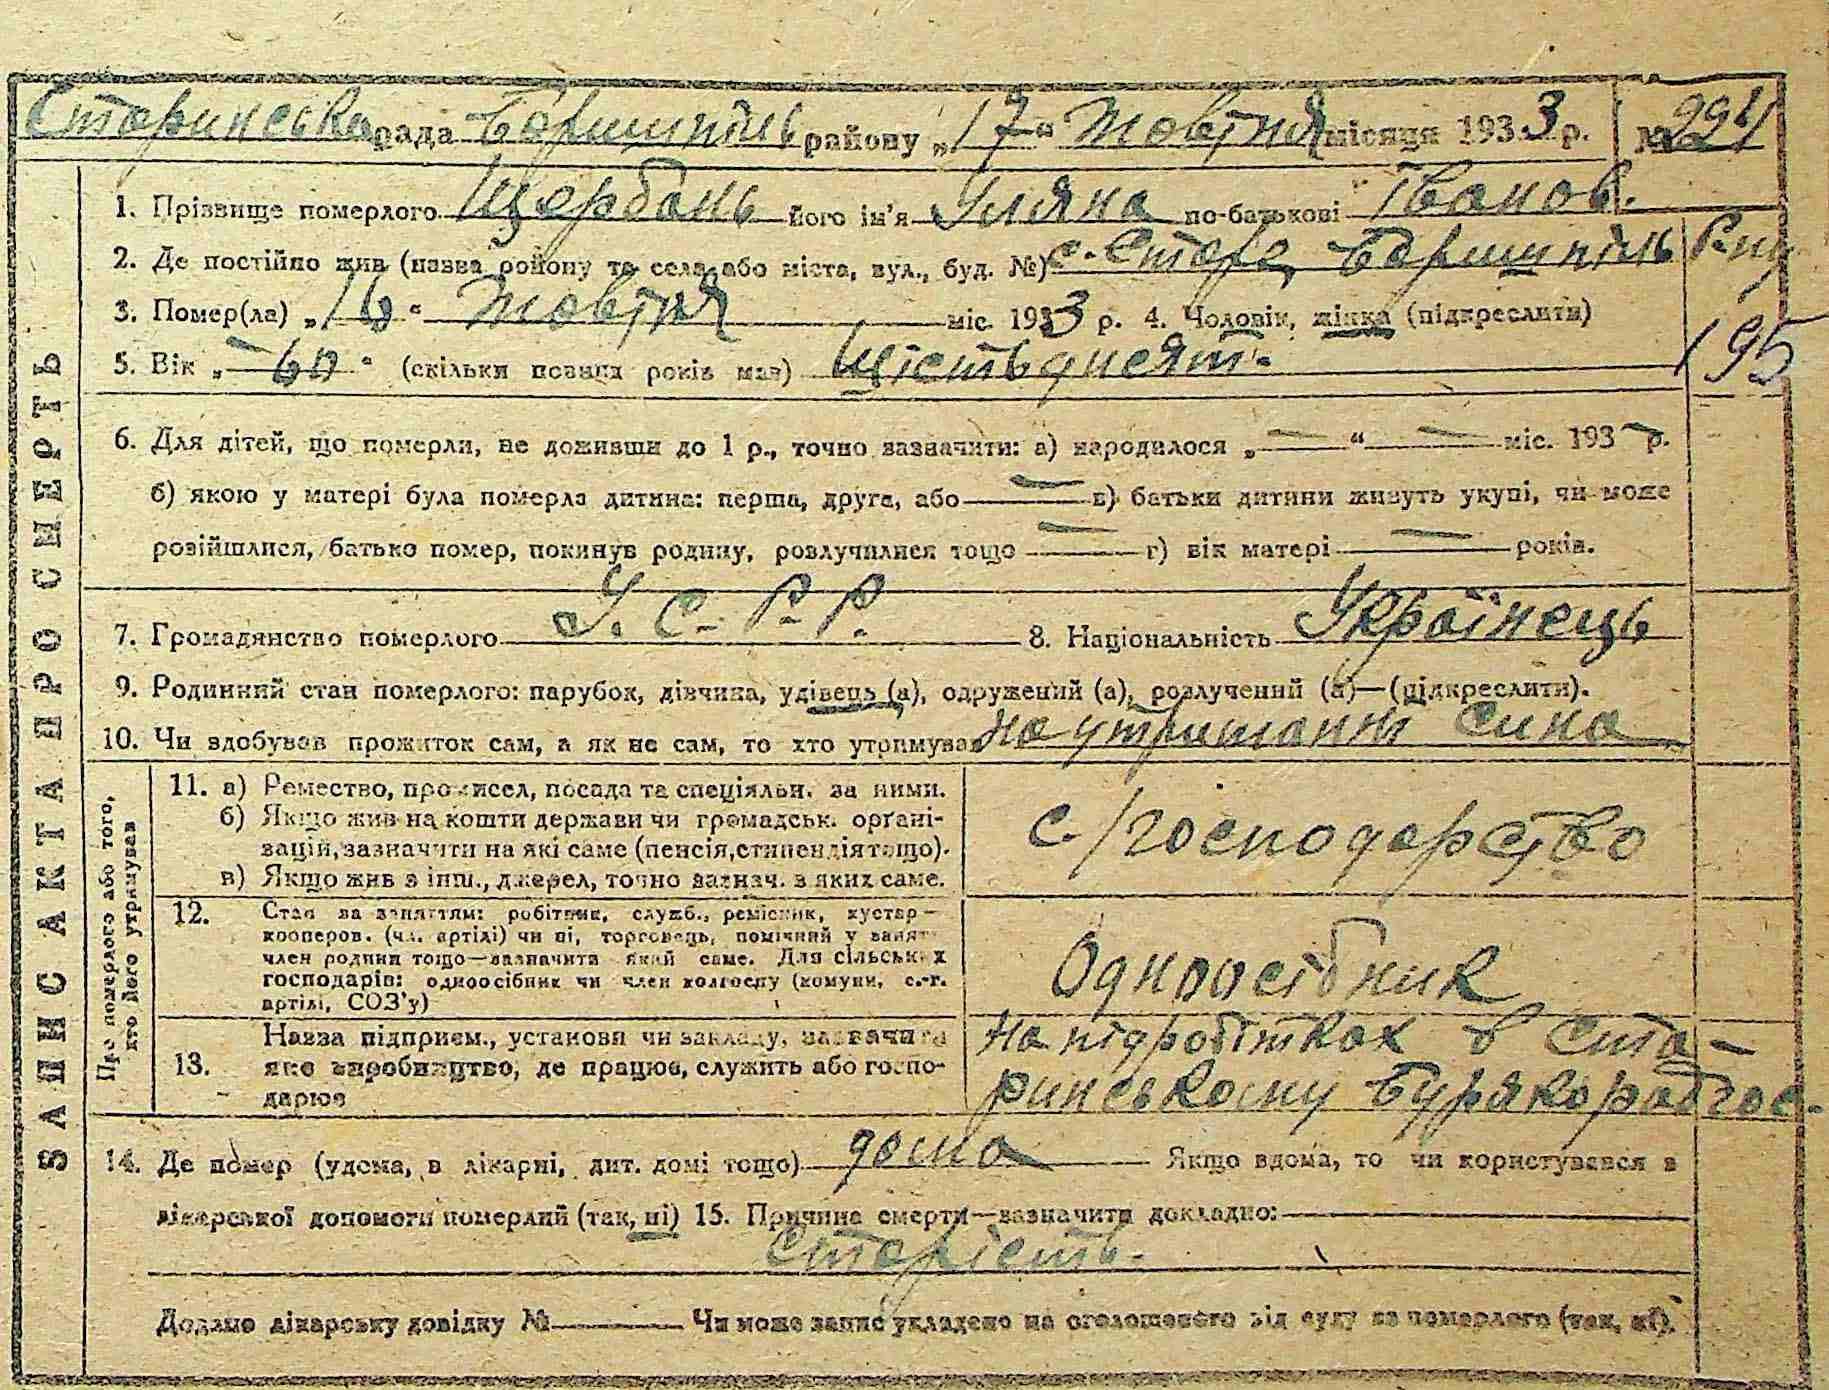 Старинська рада Бориспіль району „17“ Жовтня місяця 1933 р. № 221
ЗАПИС АКТА ПРО СМЕРТЬ
1. Прізвище померлого Щербань його ім'я Уляна по-батькові Іванов.
2. Де постійно жив (назва району та села, або міста, вул., буд. №) с. Стара, Бориспіль р-ну
3. Помер(ла) „16“ Жовтня міс. 1933 р. 4. Чоловік, жінка (підкреслити)
5. Вік „60“ (скільки повних років мав) Шістьдисят.
195
6. Для дітей, що померли, не доживши до 1 р., точно зазначити: а) народилося „—“ — міс. 193— р.
б) якою у матері була померла дитина: перша, друга, або — в) батьки дитини живуть укупі, чи може
розійшлися, батько помер, покинув родину, розлучилися тощо — г) вік матері — років.
7. Громадянство померлого У. С. Р. Р. 8. Національність Українець
9. Родинний стан померлого: парубок, дівчина, удівець (а), одружений (а), розлучений (а)—(підкреслити).
10. Чи здобував прожиток сам, а як не сам, то хто утримував на утриманні сина
Про померлого або того, хто його утримував
11. а) Ремество, промисел, посада та спеціяльн. за ними.
б) Якщо жив на кошти держави чи громадськ. органі-
зацій, зазначити на які саме (пенсія, стипендія тощо).
в) Якщо жив з інш., джерел, точно зазнач. з яких саме.
с./господарство
12. Стан за заняттям: робітник, служб., ремісник, кустар—
кооперов. (чл. артілі) чи ні, торговець, помічний у занят.
член родини тощо—зазначити який саме. Для сільських
господарів: одноосібник чи член колгоспу (комуни, с.-г.
артілі, СОЗ'у)
Одноосібник
13. Назва підприєм., установи чи закладу, зазначити
яке виробництво, де працює, служить або госпо-
дарює
на підробітках в Ста-
ринському Бурякорадгос.
14. Де помер (удома, в лікарні, дит. домі тощо) дома Якщо вдома, то чи користувався з
лікарської допомоги померлий (так, ні) 15. Причина смерти—зазначити докладно:
Старість.
Додано лікарську довідку № Чи може запис укладено на оголошеного від суду за померлого (так, ні).